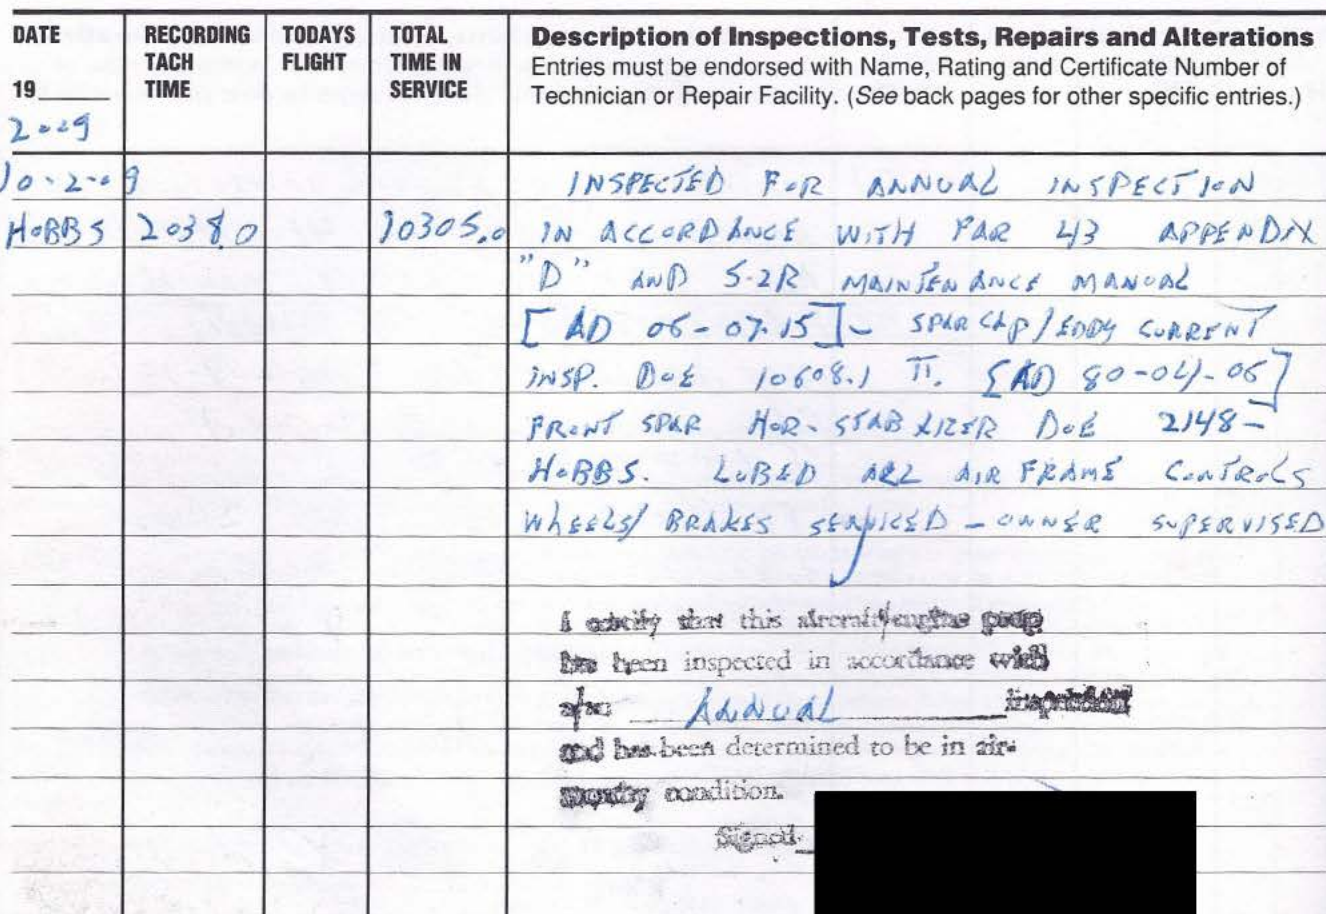 DATE RECORDING TODAYS TOTAL Description of Inspections, Tests, Repairs and Alterations
TACH FLIGHT TIME IN Entries must be endorsed with Name, Rating and Certificate Number of
19____ TIME SERVICE Technician or Repair Facility. (See back pages for other specific entries.)
2009
10-2-09 INSPECTED FOR ANNUAL INSPECTION
HOBBS 2038.0 10305.0 IN ACCORDANCE WITH FAR 43 APPENDIX
"D" AND S-2R MAINTENANCE MANUAL
[AD 06-07-15] - SPAR CAP/EDDY CURRENT
INSP. DUE 10608.1 TT. [AD 80-04-06]
FRONT SPAR HOR-STABILIZER DUE 2148-
HOBBS. LUBED ALL AIR FRAME CONTROLS
WHEELS/BRAKES SERVICED - OWNER SUPERVISED
I certify that this aircraft/engine prop
has been inspected in accordance with
a/an ANNUAL inspection
and has been determined to be in air-
worthy condition.
Signed